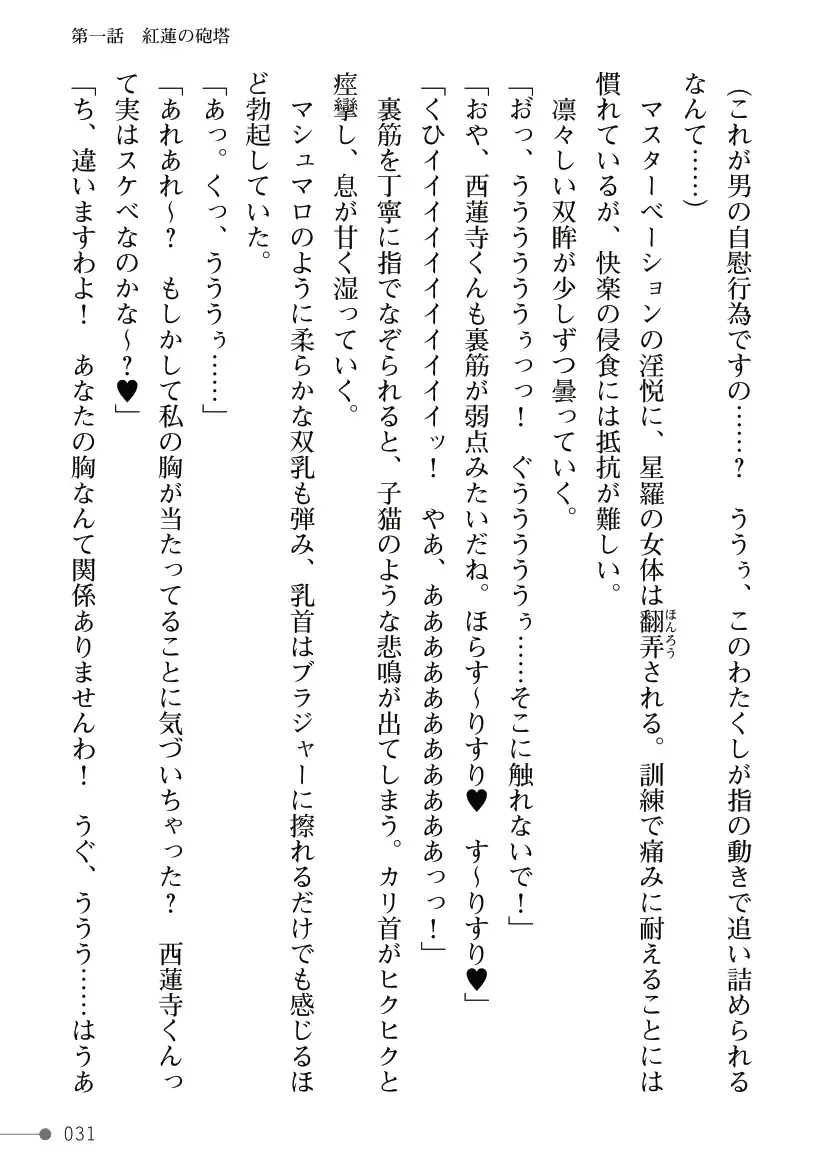 第一話　紅蓮の砲塔
（これが男の自慰行為ですの……？　ううぅ、このわたくしが指の動きで追い詰められる
なんて……）
　マスターベーションの淫悦に、星羅の女体は翻弄される。訓練で痛みに耐えることには
ほんろう
慣れているが、快楽の侵食には抵抗が難しい。
　凛々しい双眸が少しずつ曇っていく。
「お゙っ、うううううううぅっっ！　ぐうううううぅ……そこに触れないで！」
「おや、西蓮寺くんも裏筋が弱点みたいだね。ほらす～りすり♥　す～りすり♥」
「くひイイイイイイイイイイイッ！　やあ、ああああああああああああっっ！」
　裏筋を丁寧に指でなぞられると、子猫のような悲鳴が出てしまう。カリ首がヒクヒクと
痙攣し、息が甘く湿っていく。
　マシュマロのように柔らかな双乳も弾み、乳首はブラジャーに擦れるだけでも感じるほ
ど勃起していた。
「あっ。くっ、うううぅ……」
「あれあれ～？　もしかして私の胸が当たってることに気づいちゃった？　西蓮寺くんっ
て実はスケベなのかな～？♥」
「ち、違いますわよ！　あなたの胸なんて関係ありませんわ！　うぐ、ううう……はうぁ
031